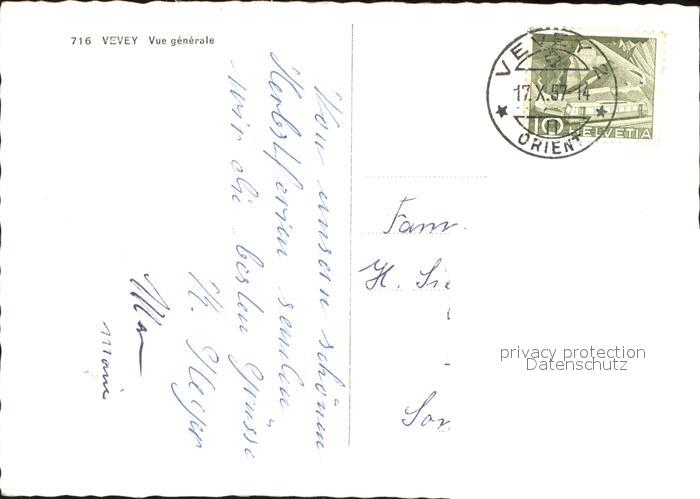 716 VEVEY Vue générale
Von unsern schönen
Herbstferien senden
wir die besten Grüsse
H.
VEVEY 2
17.X.57-14
ORIENT
10 HELVETIA
Fam.
H. Sie
privacy protection
Datenschutz